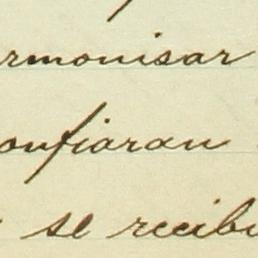 rmonisar
onfiaran
se recibi